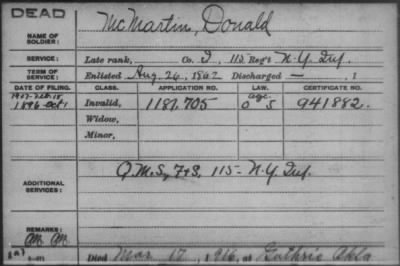 DEAD
NAME OF SOLDIER: McMartin, Donald
SERVICE: Late rank, Co. I, 115 Reg't N.Y. Inf.
TERM OF SERVICE: Enlisted Aug. 26, 1862 Discharged —, 1
DATE OF FILING. CLASS. APPLICATION NO. LAW. CERTIFICATE NO.
1896 Oct 1 Invalid, 1181.705 941882.
Widow,
Minor,
ADDITIONAL SERVICES: Q.M.S, F+S, 115- N.Y. Inf.
REMARKS:
Died Mar 17, 1916, at Guthrie Okla